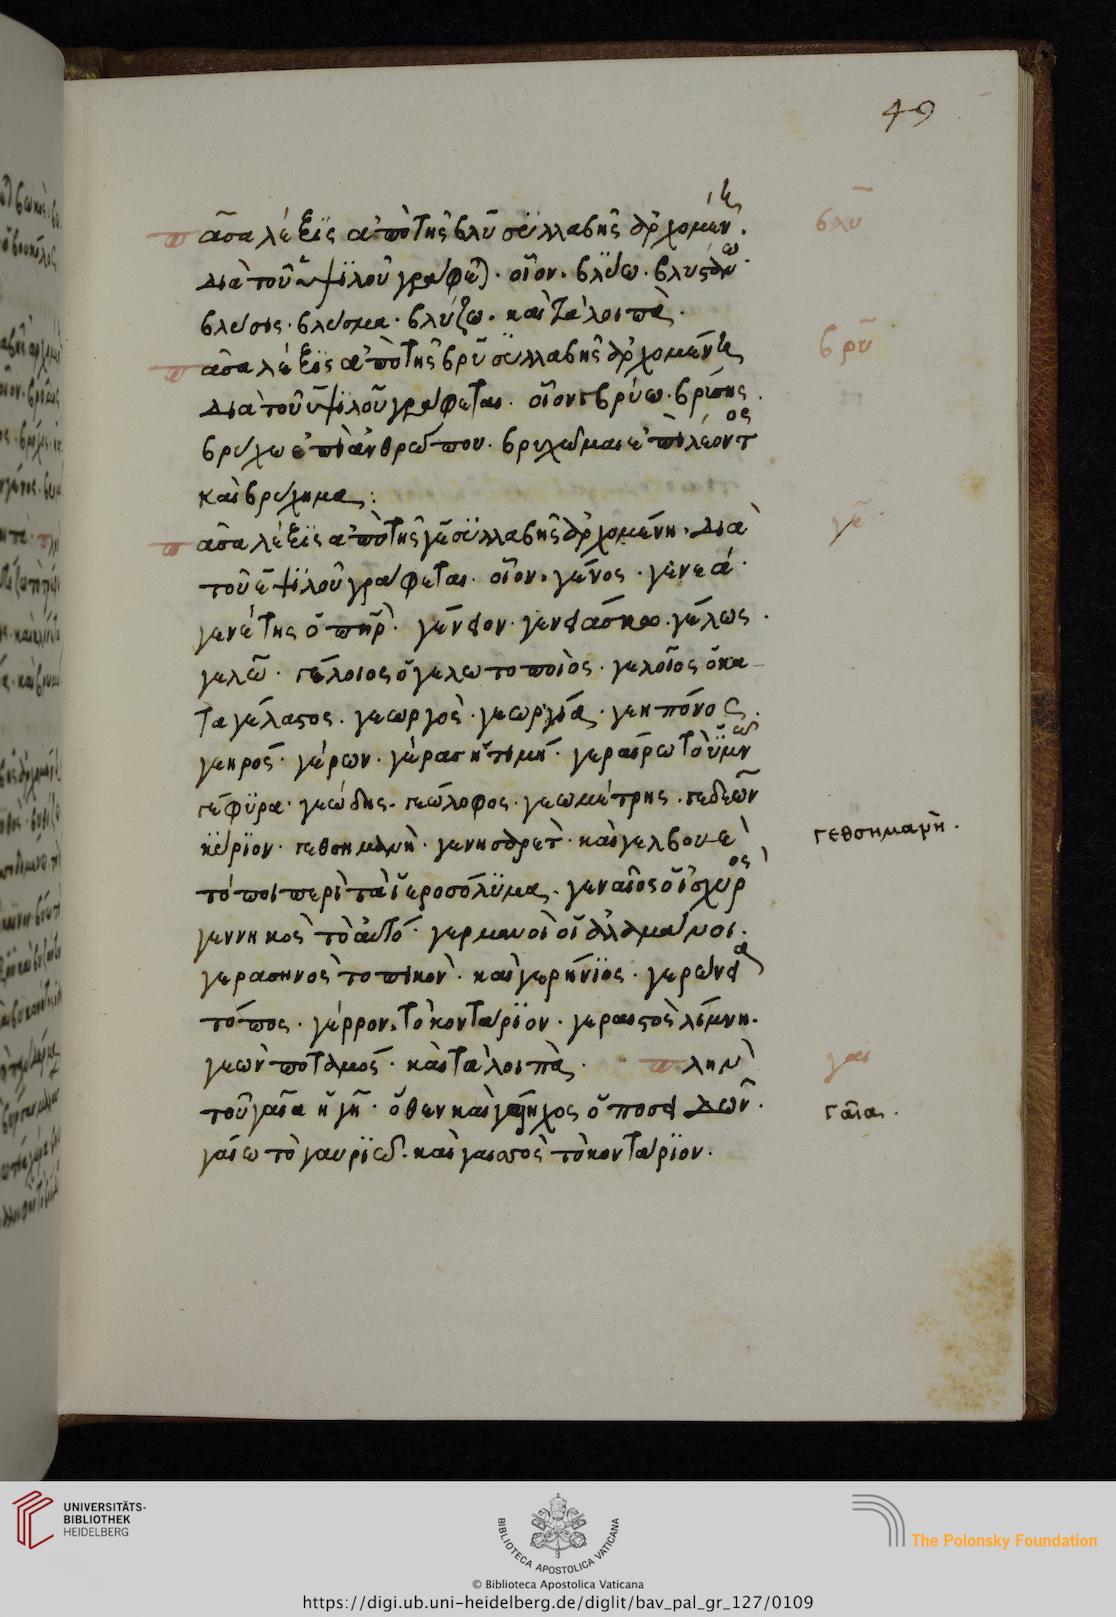 49
πᾶσα λέξϊς ἀπὸ τῆς βλῦ σϋλλαβῆς ἀρχομένης.
βλῦ
διὰ τοῦ ῡ ψϊλοῦ γράφεται. οἷον. βλΰω. βλυστάνω.
βλύσις. βλύσμα. βλύζω. καὶ τὰ λοιπὰ.
πᾶσα λέξϊς ἀπὸ τῆς βρῦ σϋλλαβῆς ἀρχομένης
βρῦ
διὰ τοῦ ῡ ψϊλοῦ γράφεται. οἷον βρύω. βρύσης.
βρύχω ἐπὶ ἀνθρώπου. βρυχῶμαι ἐπὶ λέοντος
καὶ βρύχημα:
πᾶσα λέξϊς ἀπὸ τῆς γε σϋλλαβῆς ἀρχομένη. διὰ
γε
τοῦ ε ψϊλοῦ γράφεται. οἷον. γένος. γενεά.
γενέτης ὁ πηρ. γένειον. γενειάσκω. γέλως.
γελῶ. γέλοιος ὁ γελωτοποιὸς. γελοῖος ὁ κα-
ταγέλαστος. γεωργὸς. γεωργία. γεηπόνος.
γεηρός. γέρων. γέρας ἡ τιμή. γεραίρω τὸ ὑμνῶ
γέφϋρα. γεώδης. γεώλοφος. γεωμέτρης. γεδεὼν
κΰριον. γεθσημανὴ. γενησαρετ. καὶ γελβουε
γεθσημανὴ.
τόποι περὶ τὰ ἱεροσόλϋμα. γεναῖος ὁ ἰσχυρὸς
γεννηκὸς τὸ αὐτό. γερμανοὶ οἱ ἀλαμανοι.
γερασηνος τοπικον. καὶ γερήνϊος. γερωνεία
τόπος. γέρρον. τὸ κονταρϊον. γεραιστὸς λίμνη.
γεὼν ποταμός. καὶ τὰ λοιπὰ. πλὴν
γαι
τοῦ γαῖα ἡ γῆ. ὅθεν καὶ γαιήοχος ὁ ποσειδῶν.
γαῖα.
γαίω τὸ γαυρϊῶ. καὶ γαισὸς τὸ κοντάρϊον.
UNIVERSITÄTS-
BIBLIOTHEK
HEIDELBERG
BIBLIOTECA APOSTOLICA VATICANA
The Polonsky Foundation
© Biblioteca Apostolica Vaticana
https://digi.ub.uni-heidelberg.de/diglit/bav_pal_gr_127/0109